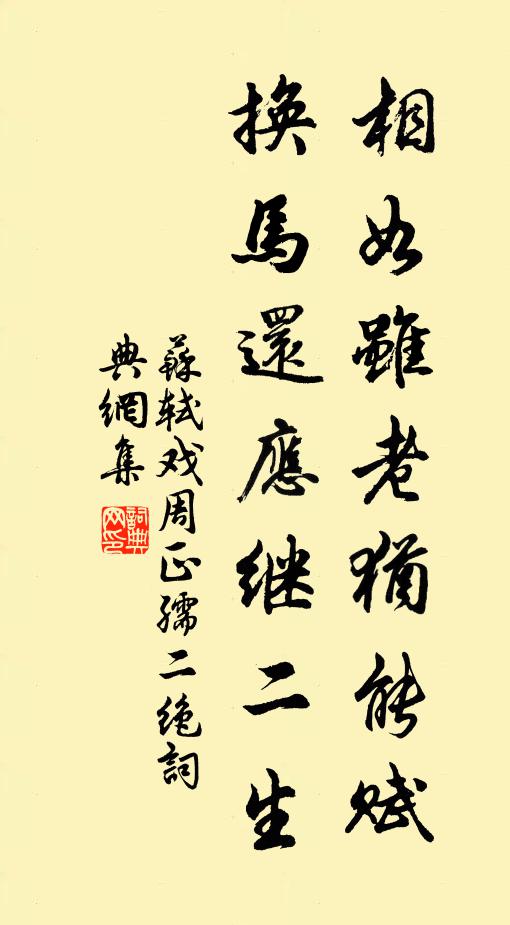 相如雖老猶能赋
換馬還應继二生
蘇轼戏周正孺二绝詞
典網集
詞典網印